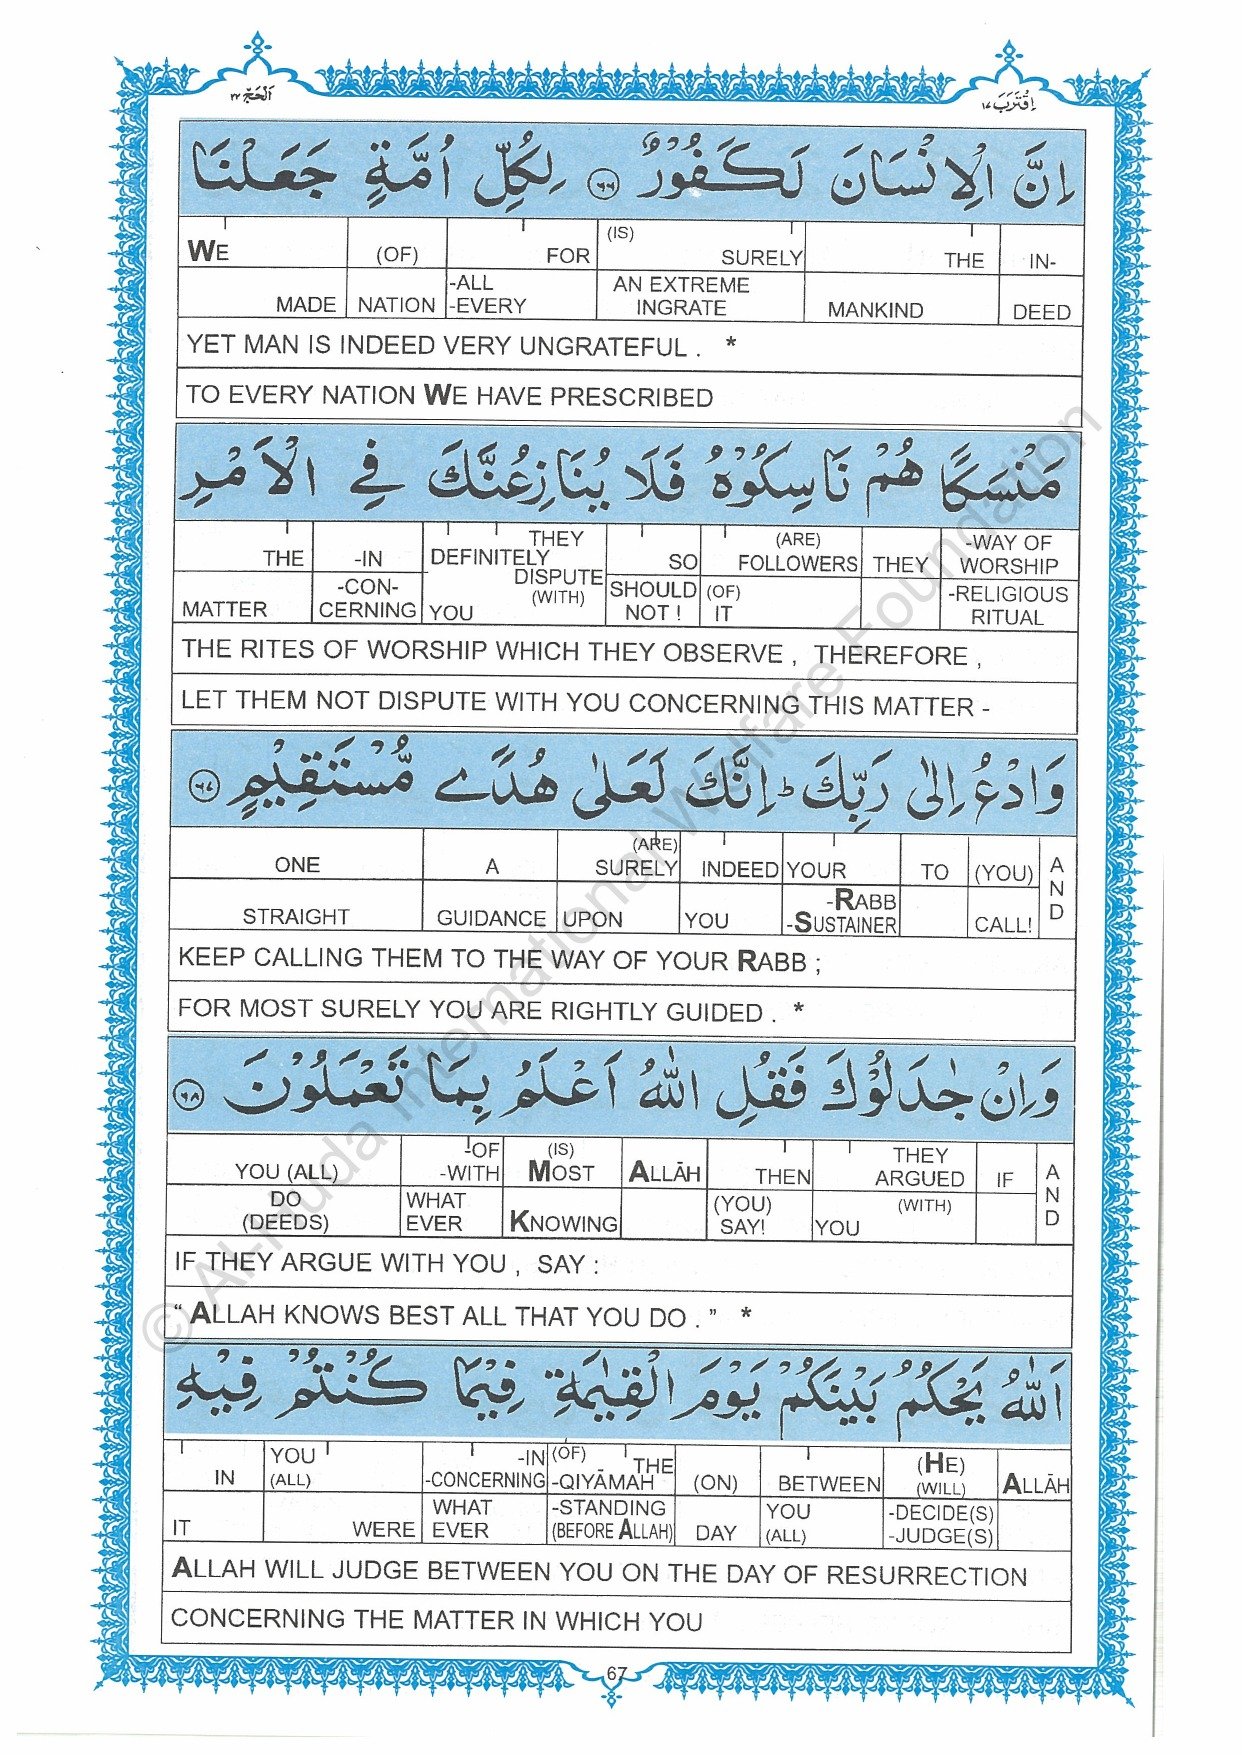 اَلْحَجّ ٢٢
اِقْتَرَبَ ١٧
اِنَّ الْاِنْسَانَ لَكَفُوْرٌ ٦٦ لِكُلِّ اُمَّةٍ جَعَلْنَا
WE (OF) FOR (IS) SURELY THE IN-
MADE NATION -ALL -EVERY AN EXTREME INGRATE MANKIND DEED
YET MAN IS INDEED VERY UNGRATEFUL . *
TO EVERY NATION WE HAVE PRESCRIBED
مَنْسَكًا هُمْ نَاسِكُوْهُ فَلَا يُنَازِعُنَّكَ فِي الْاَمْرِ
THE -IN THEY DEFINITELY SO (ARE) FOLLOWERS THEY -WAY OF WORSHIP
MATTER -CON- CERNING DISPUTE (WITH) YOU SHOULD NOT ! (OF) IT -RELIGIOUS RITUAL
THE RITES OF WORSHIP WHICH THEY OBSERVE , THEREFORE ,
LET THEM NOT DISPUTE WITH YOU CONCERNING THIS MATTER -
وَادْعُ اِلٰى رَبِّكَ ؕ اِنَّكَ لَعَلٰى هُدًى مُّسْتَقِيْمٍ ٦٧
ONE A (ARE) SURELY INDEED YOUR TO (YOU) AND
STRAIGHT GUIDANCE UPON YOU -RABB -SUSTAINER CALL!
KEEP CALLING THEM TO THE WAY OF YOUR RABB ;
FOR MOST SURELY YOU ARE RIGHTLY GUIDED . *
وَاِنْ جٰدَلُوْكَ فَقُلِ اللّٰهُ اَعْلَمُ بِمَا تَعْمَلُوْنَ ٦٨
YOU (ALL) -OF -WITH (IS) MOST ALLĀH THEN THEY ARGUED IF AND
DO (DEEDS) WHAT EVER KNOWING (YOU) SAY! (WITH) YOU
IF THEY ARGUE WITH YOU , SAY :
“ ALLAH KNOWS BEST ALL THAT YOU DO . ” *
اَللّٰهُ يَحْكُمُ بَيْنَكُمْ يَوْمَ الْقِيٰمَةِ فِيْمَا كُنْتُمْ فِيْهِ
IN YOU (ALL) -IN -CONCERNING (OF) THE -QIYĀMAH (ON) BETWEEN (HE) (WILL) ALLĀH
IT WERE WHAT EVER -STANDING (BEFORE ALLAH) DAY YOU (ALL) -DECIDE(S) -JUDGE(S)
ALLAH WILL JUDGE BETWEEN YOU ON THE DAY OF RESURRECTION
CONCERNING THE MATTER IN WHICH YOU
67
© Al-Huda International Welfare Foundation